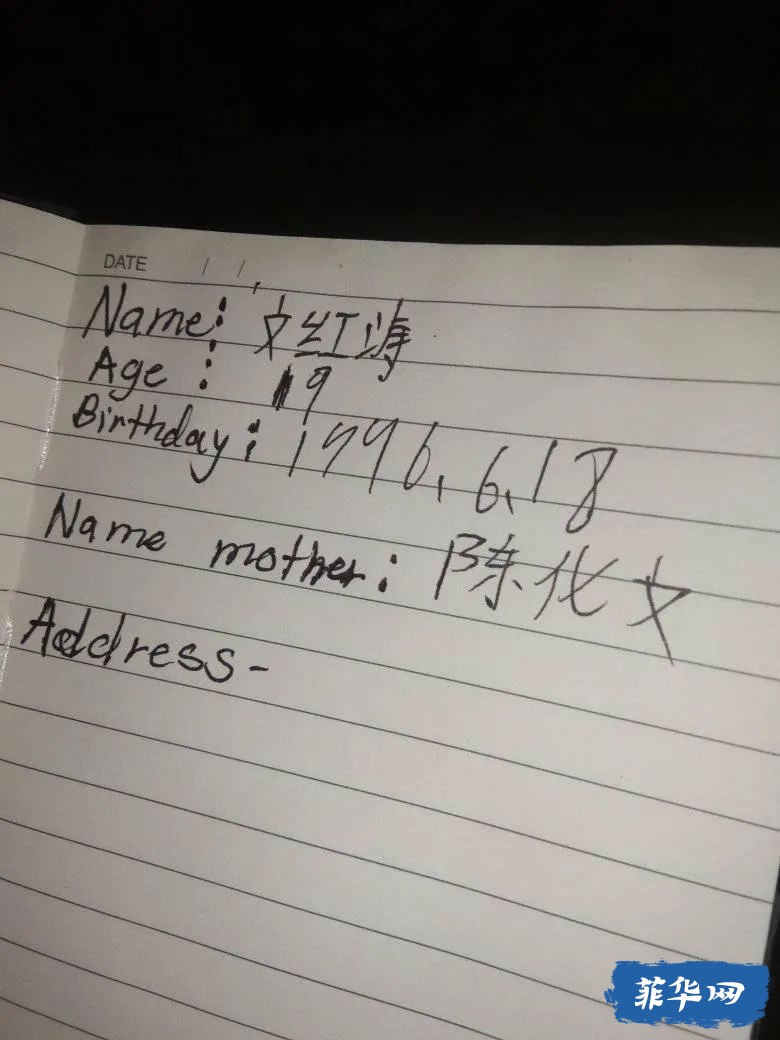 DATE / /
Name: 文红涛
Age: 19
Birthday: 1996.6.18
Name mother: 陈化文
Address-
菲华网